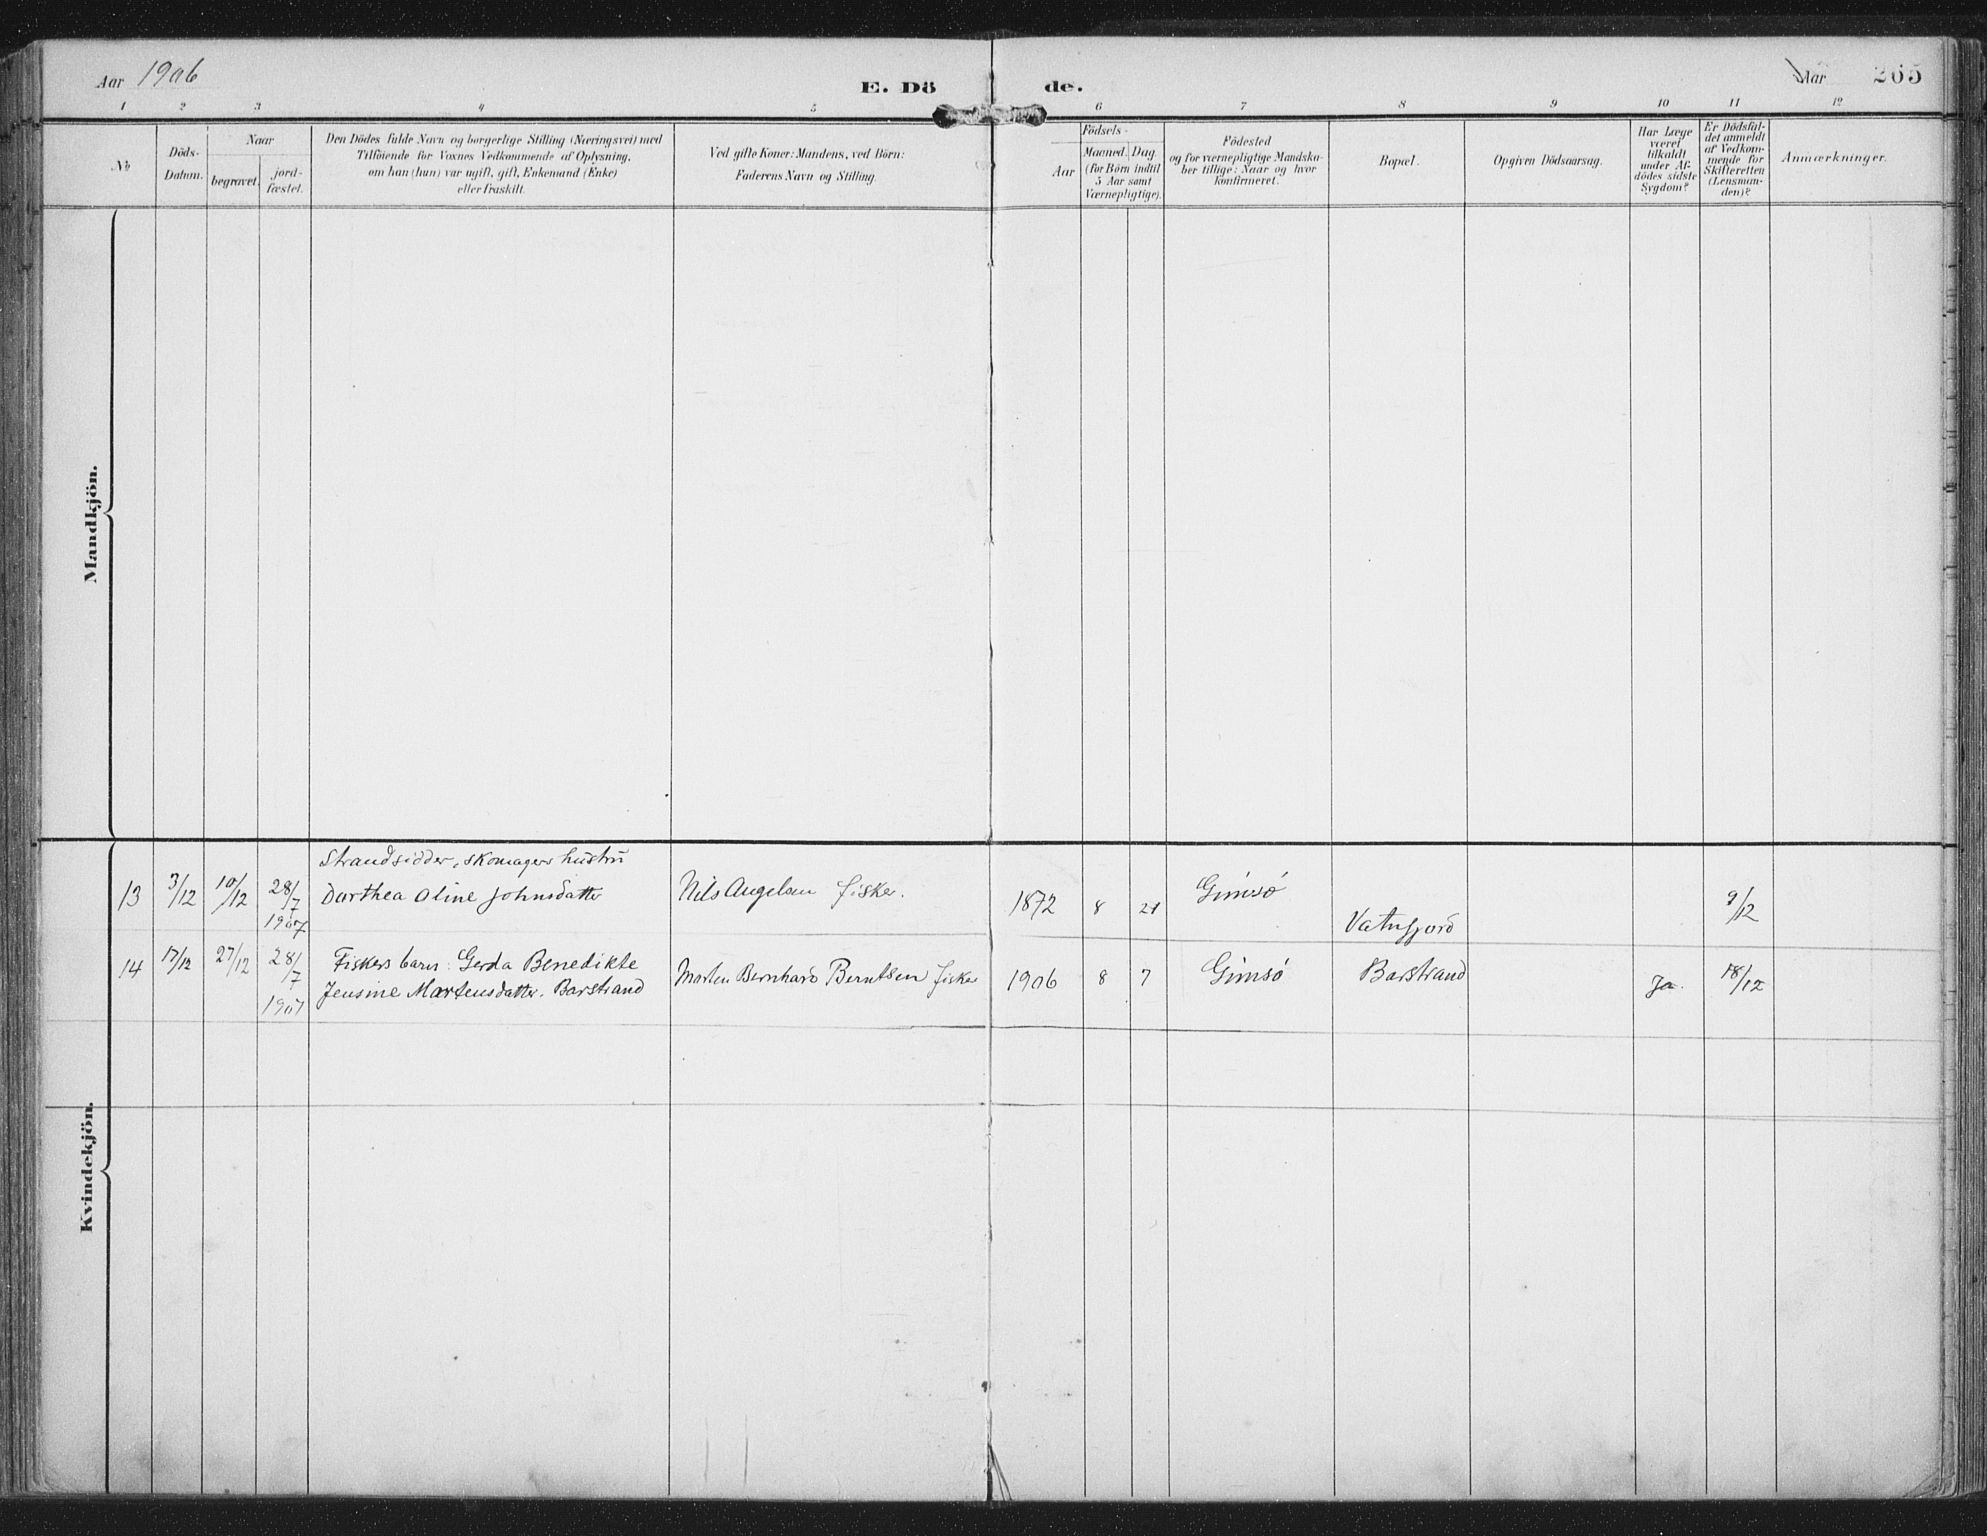 Aar 1906
E. Dö de.
Aar 265
1 2 3 4 5 6 7 8 9 10 11 12
№
Döds-
Datum.
Naar
begravet.
jord-
fæstet.
Den Dödes fulde Navn og borgerlige Stilling (Næringsvei) med
Tilföiende for Voxnes Vedkommende af Oplysning,
om han (hun) var ugift, gift, Enkemand (Enke)
eller fraskilt.
Ved gifte Koner: Mandens, ved Börn:
Faderens Navn og Stilling.
Födsels-
Aar
Maaned. Dag.
(for Börn indtil
5 Aar samt
Værnepligtige).
Födested
og for værnepligtige Mandska-
ber tillige: Naar og hvor
konfirmeret.
Bopæl.
Opgiven Dödsaarsag.
Har Læge
været
tilkaldt
under Af-
dödes sidste
Sygdom?
Er Dödsfal-
det anmeldt
af Vedkom-
mende for
Skifteretten
(Lensman-
den)?
Anmærkninger.
Mandkjön.
Strandsidder, skomagers hustru
13 3/12 10/12 28/7 Dorthea Oline Johnsdatter Nils Angelsen fisker. 1872 8 21 Gimsö 9/12
1907 Vatnfjord
14 17/12 27/12 28/7 Fiskers barn: Gerda Benedikte
Jensine Martensdatter. Barstrand Morten Bernhard Berntsen fisker 1906 8 7 Gimsö Barstrand Ja. 18/12
1907
Kvindekjön.